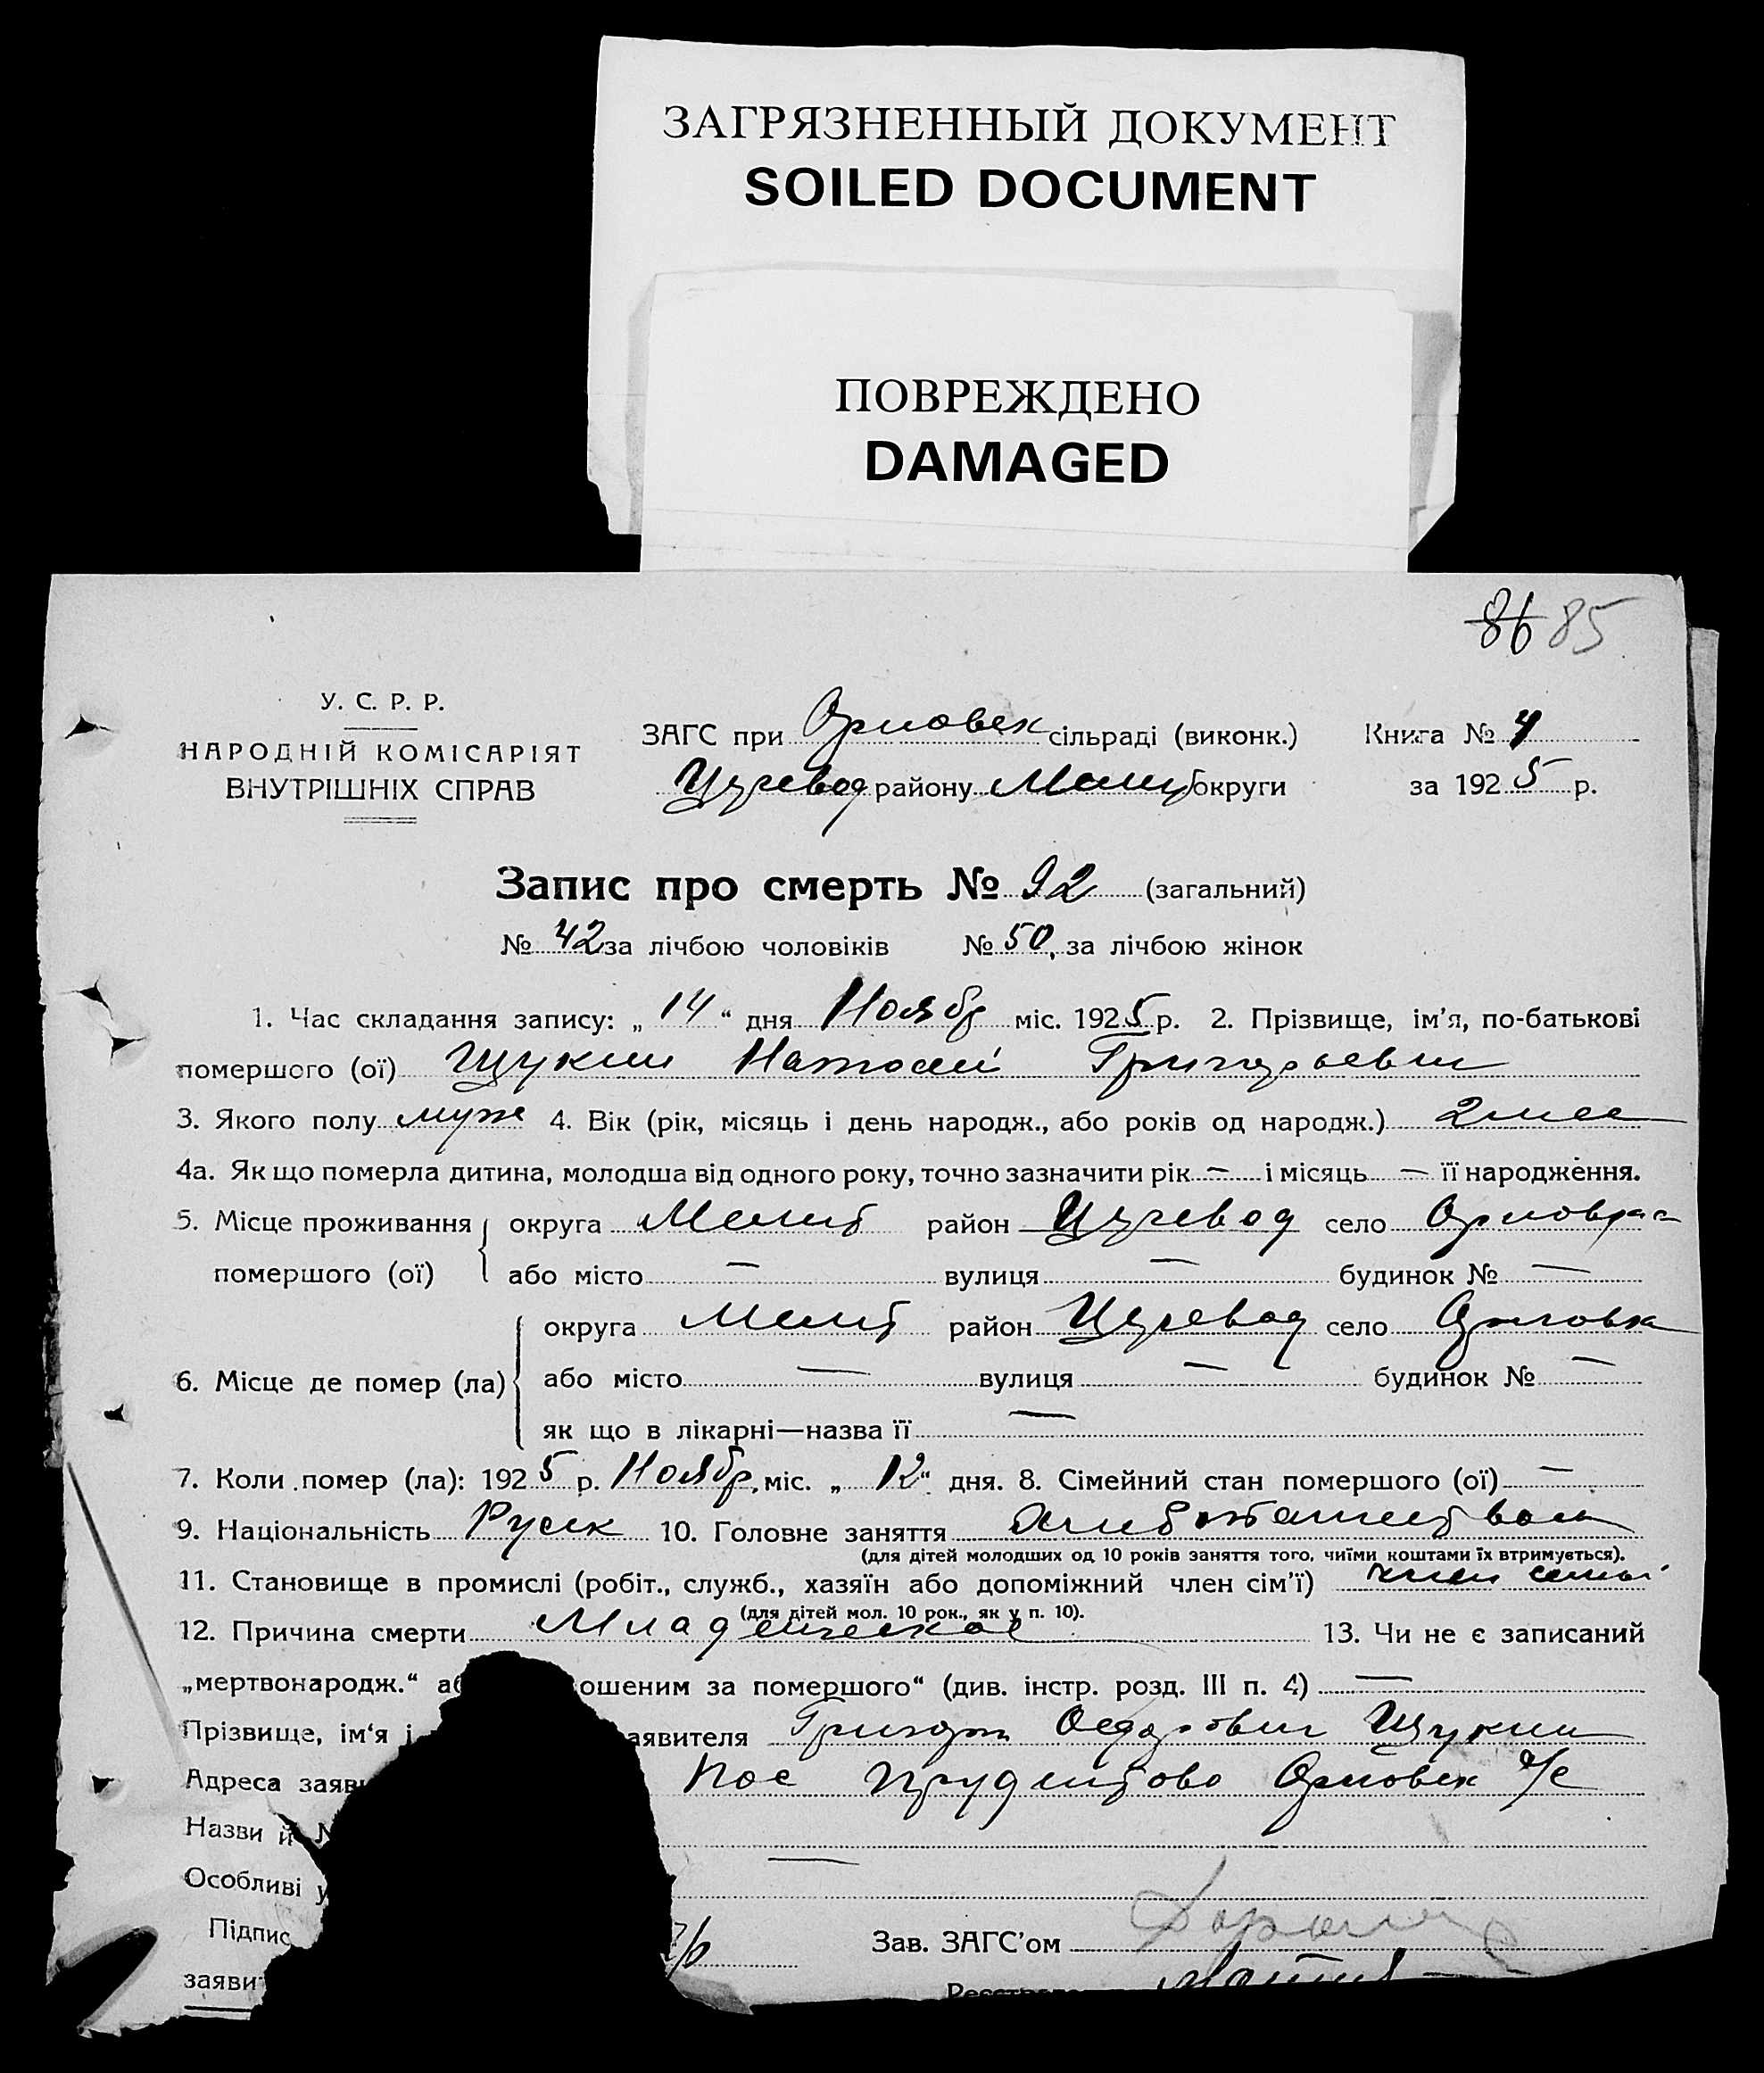 ЗАГРЯЗНЕННЫЙ ДОКУМЕНТ
SOILED DOCUMENT
ПОВРЕЖДЕНО
DAMAGED
86 85
У. С. Р. Р.
НАРОДНІЙ КОМІСАРІЯТ
ВНУТРІШНІХ СПРАВ
ЗАГС при Орловск сільраді (виконк.) Книга № 4
району Мелит округи за 1925 р.
Запис про смерть № 92 (загальний)
№ 42 за лічбою чоловіків № 50, за лічбою жінок
1. Час складання запису: „ 14 “ дня Ноябр міс. 1925 р. 2. Прізвище, ім’я, по-батькові
помершого (ої) Щукин Натолий Григорьевич
3. Якого полу муж 4. Вік (рік, місяць і день народж., або років од народж.) 2 мес
4а. Як що померла дитина, молодша від одного року, точно зазначити рік — і місяць — її народження.
5. Місце проживання округа Мелит район село Орловка
помершого (ої) або місто — вулиця — будинок № —
округа Мелит район село Орловка
6. Місце де помер (ла) або місто — вулиця — будинок № —
як що в лікарні—назва її —
7. Коли помер (ла): 1925 р. Ноябр. міс. „ 12 “ дня. 8. Сімейний стан помершого (ої) —
9. Національність Руск 10. Головне заняття
(для дітей молодших од 10 років заняття того, чиїми коштами їх втримується).
11. Становище в промислі (робіт., служб., хазяїн або допоміжний член сім’ї) член семьи
(для дітей мол. 10 рок., як у п. 10).
12. Причина смерти Младенческая 13. Чи не є записаний
„мертвонародж.“ аб ошеним за помершого“ (див. інстр. розд. III п. 4) —
Прізвище, ім‘я і аявителя Григори Федорович Щукин
Адреса заяв Пос Орловск с/с
Назви й №
Особливі у —
Підпис Зав. ЗАГС’ом
заяви